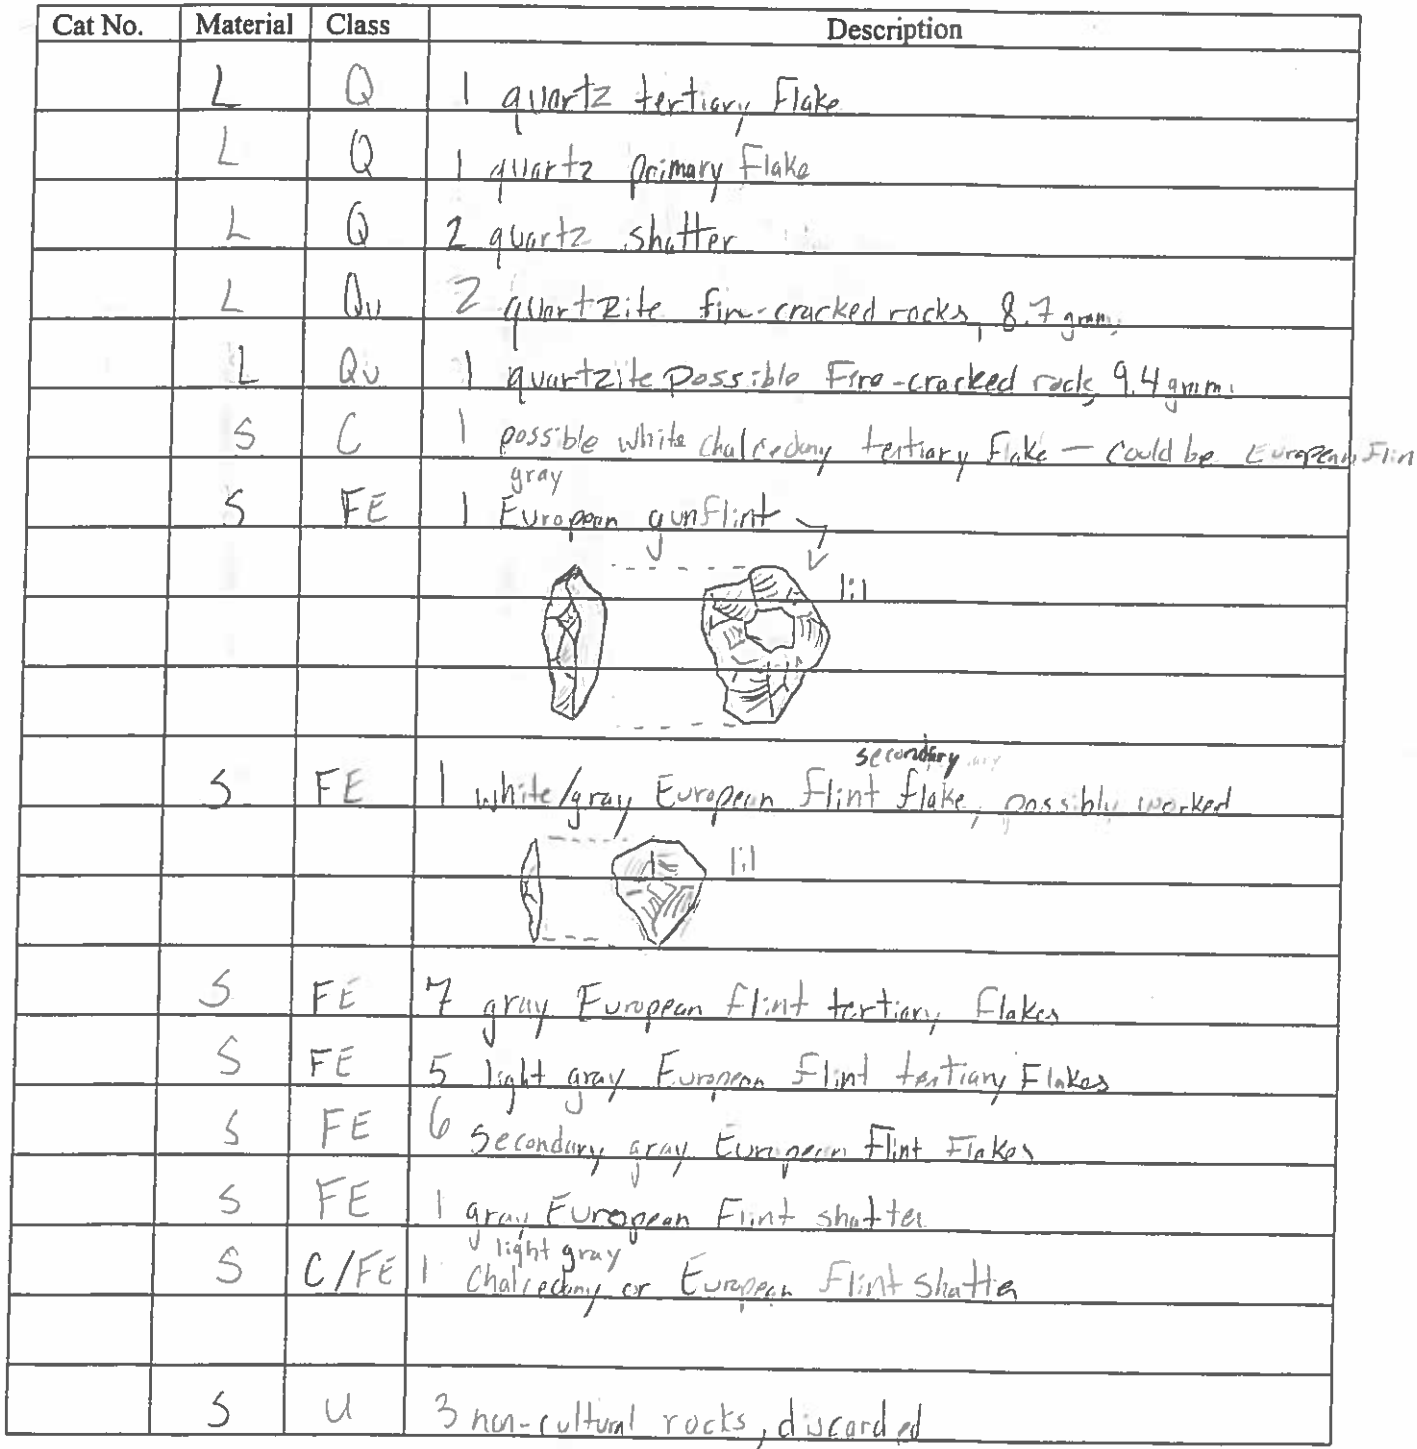 Cat No. Material Class Description
L Q 1 quartz tertiary Flake
L Q 1 quartz primary Flake
L Q 2 quartz shatter
L Qu 2 quartzite fire-cracked rocks, 8.7 gmm.
L Qu 1 quartzite possible Fire-cracked rock, 9.4 gmm.
S C 1 possible white chalcedony tertiary Flake — could be European Flin
gray
S FE 1 European gunflint
1:1
secondary
S FE 1 white/gray European flint flake, possibly worked
1:1
S FE 7 gray European flint tertiary Flakes
S FE 5 light gray European flint tertiary Flakes
S FE 6 Secondary gray European flint Flakes
S FE 1 gray European Flint shatter
light gray
S C/FE 1 Chalcedony or European Flint Shatter
S U 3 non-cultural rocks, discarded